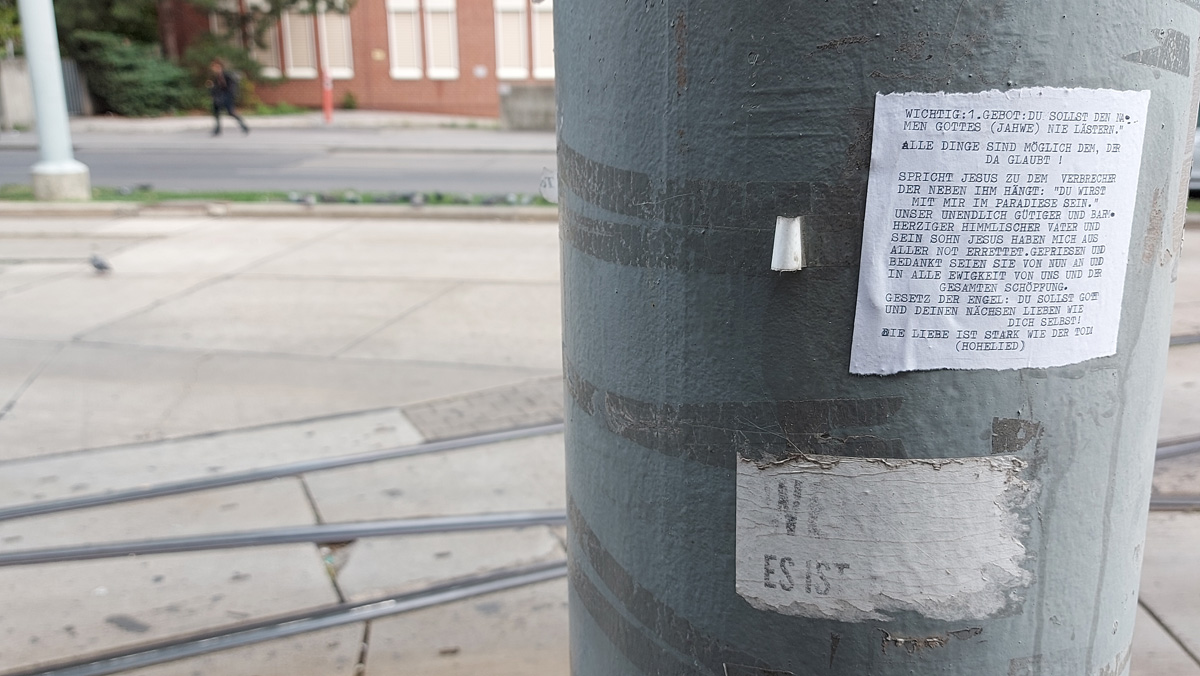 WICHTIG:1.GEBOT:DU SOLLST DEN NA-
MEN GOTTES (JAHWE) NIE LÄSTERN."
ALLE DINGE SIND MÖGLICH DEM, DER
DA GLAUBT !
SPRICHT JESUS ZU DEM VERBRECHER
DER NEBEN IHM HÄNGT: "DU WIRST
MIT MIR IM PARADIESE SEIN."
UNSER UNENDLICH GÜTIGER UND BARM-
HERZIGER HIMMLISCHER VATER UND
SEIN SOHN JESUS HABEN MICH AUS
ALLER NOT ERRETTET.GEPRIESEN UND
BEDANKT SEIEN SIE VON NUN AN UND
IN ALLE EWIGKEIT VON UNS UND DER
GESAMTEN SCHÖPFUNG.
GESETZ DER ENGEL: DU SOLLST GOTT
UND DEINEN NÄCHSEN LIEBEN WIE
DICH SELBST!
DIE LIEBE IST STARK WIE DER TOD!
(HOHELIED)
ES IST